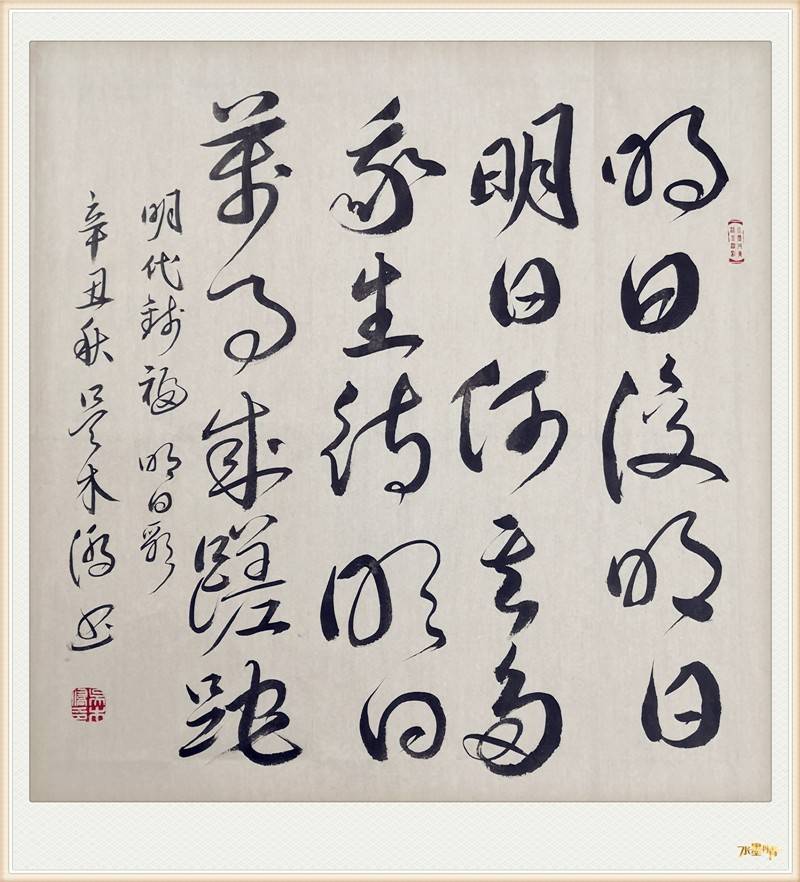 明日復明日
明日何其多
我生待明日
萬事成蹉跎
明代錢福 明日歌
辛丑秋 吴木 书
水墨